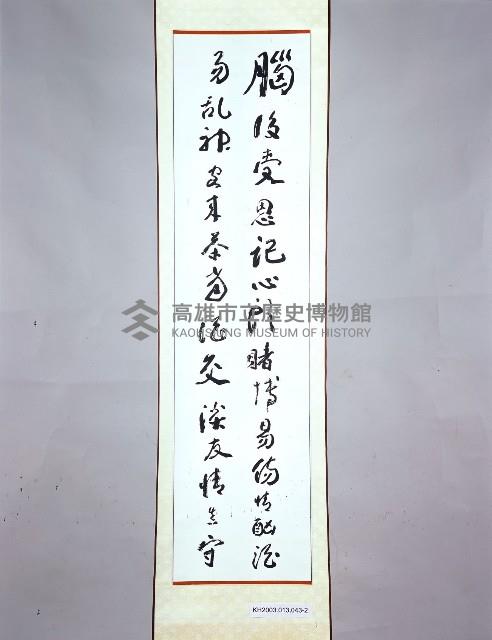 腦後受恩記心  賭博易傷情酗酒
易乱神客來茶當酒交淡友情長守
高雄市立歷史博物館
KAOHSIUNG MUSEUM OF HISTORY
KH2003.013.043-2